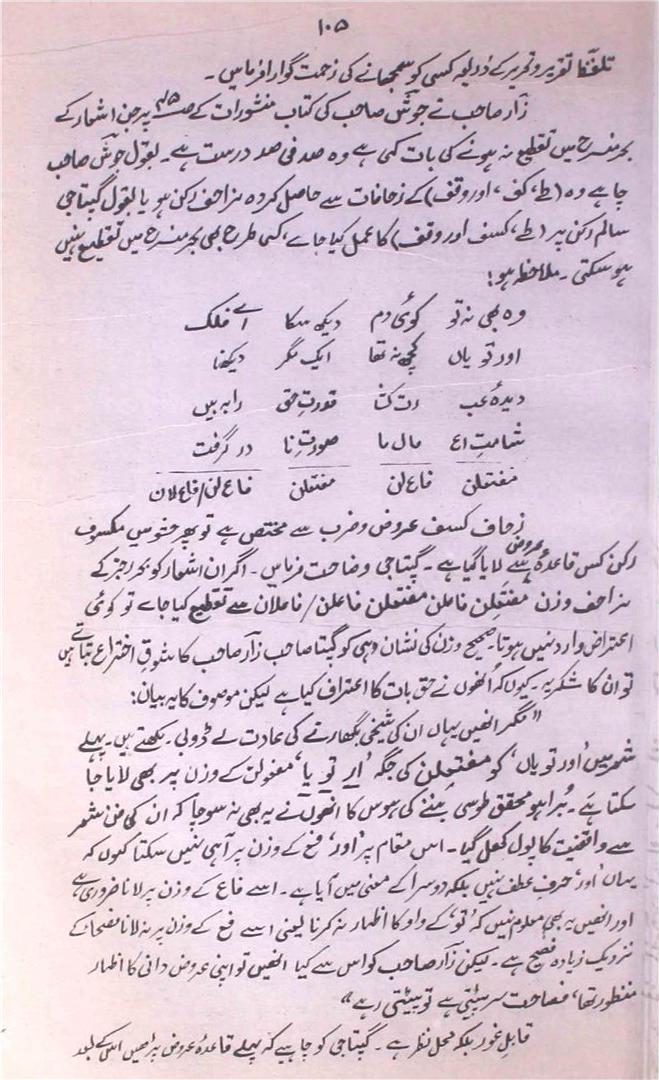 ۱۰۵
تلفّظ تقریر و تحریر کے ذریعہ کسی کو سمجھانے کی زحمت گوارا فرمائیں۔
زآر صاحب نے جوشؔ صاحب کی کتاب منشورات کے پر جن اشعار کے
بحر منسرح میں تقطیع نہ ہونے کی بات کہی ہے وہ صد فی صد درست ہے۔ بقول جوشؔ صاحب
چاہے وہ (طے، کف، اور وقف) کے زحافات سے حاصل کردہ مزاحف رکن ہو یا بقول گپتا جی
سالم رکن پر (طے، کسف اور وقف) کا عمل کیا جائے، کسی طرح بھی بحر منسرح میں تقطیع نہیں
ہو سکتی۔ ملاحظہ ہو!
وہ بھی نہ تو کوئی دم دیکھ سکا اے فلک
اور تو یاں کچھ نہ تھا ایک مگر دیکھنا
دیدۂ عب رت کشا قدرتِ حق راہ بیں
شامتِ اع مال ما صورتِ نا در گرفت
مفتعلن فاعلن مفتعلن فاعلن/فاعلان
زحاف کسف عروض و ضرب سے مختص ہے تو پھر حشو میں مکسوف
رکن کس قاعدۂ عروض سے لایا گیا ہے۔ گپتا جی وضاحت فرمائیں۔ اگر ان اشعار کو بحر رجز کے
مزاحف وزن مفتعلن فاعلن مفتعلن فاعلن/فاعلان سے تقطیع کیا جائے تو کوئی
اعتراض وارد نہیں ہوتا۔ صحیح وزن کی نشان دہی کو گپتا صاحب زآر صاحب کا شوقِ اختراع بتاتے ہیں
تو ان کا شکریہ۔ کیوں کہ اُنھوں نے حق بات کا اعتراف کیا ہے لیکن موصوف کا یہ بیان:
"مگر انھیں یہاں ان کی شیخی بگھارنے کی عادت لے ڈوبی۔ لکھتے ہیں۔ پہلے
شعر میں 'اور تو یاں' کو مفتعلن کی جگہ 'ار تو یا' مفعولن کے وزن پر بھی لایا جا
سکتا ہے۔ بُرا ہو محقق طوسی بننے کی ہوس کا انھوں نے یہ بھی نہ سوچا کہ ان کی فن شعر
سے واقفیت کا پول کھل گیا۔ اس مقام پر 'اور' فع کے وزن پر آ ہی نہیں سکتا کیوں کہ
یہاں 'اور' حرفِ عطف نہیں بلکہ دوسرا کے معنی میں آیا ہے۔ اسے فاع کے وزن پر لانا ضروری ہے
اور انھیں یہ بھی معلوم نہیں کہ 'تو' کے واو کا اظہار نہ کرنا یعنی اسے فع کے وزن پر نہ لانا فصحا کے
نزدیک زیادہ فصیح ہے۔ لیکن زآر صاحب کو اس سے کیا انھیں تو اپنی عروض دانی کا اظہار
منظور تھا، فصاحت سر پیٹتی ہے تو پیٹتی رہے"
قابلِ غور بلکہ محل نظر ہے۔ گپتا جی کو چاہیے کہ پہلے قاعدۂ عروض پڑھیں اس کے بعد